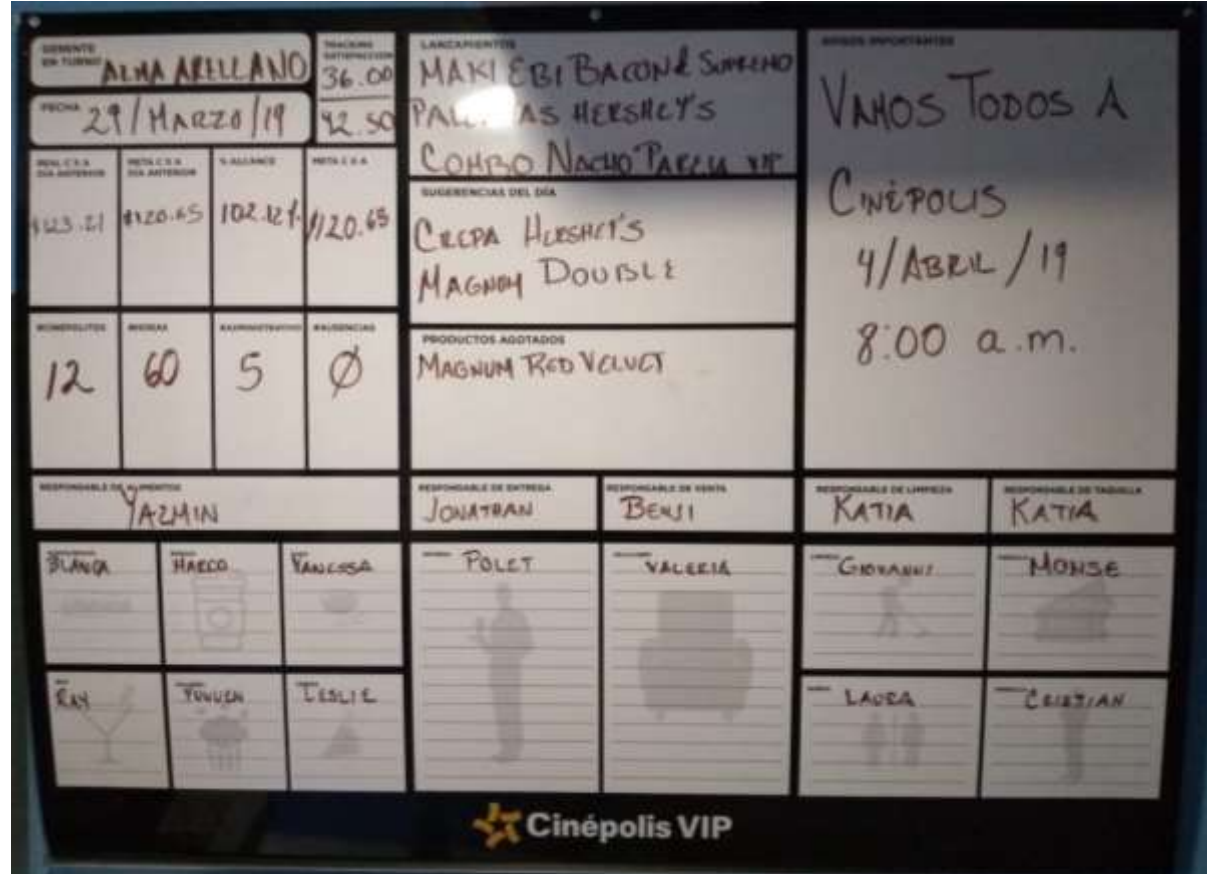 GERENTE
EN TURNO
ALMA ARELLANO
FECHA
29/MARZO/19
TRACKING
SATISFACCION
36.00
42.50
REAL C.V.A
DÍA ANTERIOR
$123.21
META C.V.A
DÍA ANTERIOR
$120.65
% ALCANCE
102.12%
META C.V.A
$120.65
#CINEPOLITOS
12
#HORAS
60
#ADMINISTRATIVO
5
#AUSENCIAS
Ø
LANZAMIENTOS
MAKI EBI BACON & SUPREMO
HERSHEY'S
COMBO NACHO VIP
SUGERENCIAS DEL DÍA
CREPA HERSHEY'S
MAGNUM DOUBLE
PRODUCTOS AGOTADOS
MAGNUM RED VELVET
AVISOS IMPORTANTES
VAMOS TODOS A
CINÉPOLIS
4/ABRIL/19
8:00 a.m.
RESPONSABLE DE ALIMENTOS
YAZMIN
RESPONSABLE DE ENTREGA
JONATHAN
RESPONSABLE DE VENTA
BENJI
RESPONSABLE DE LIMPIEZA
KATIA
RESPONSABLE DE TAQUILLA
KATIA
BLANCA
MARCO
VANESSA
POLET
VALERIA
GIOVANNI
MONSE
RAY
YUNUEN
LESLIE
LAURA
CRISTIAN
Cinépolis VIP